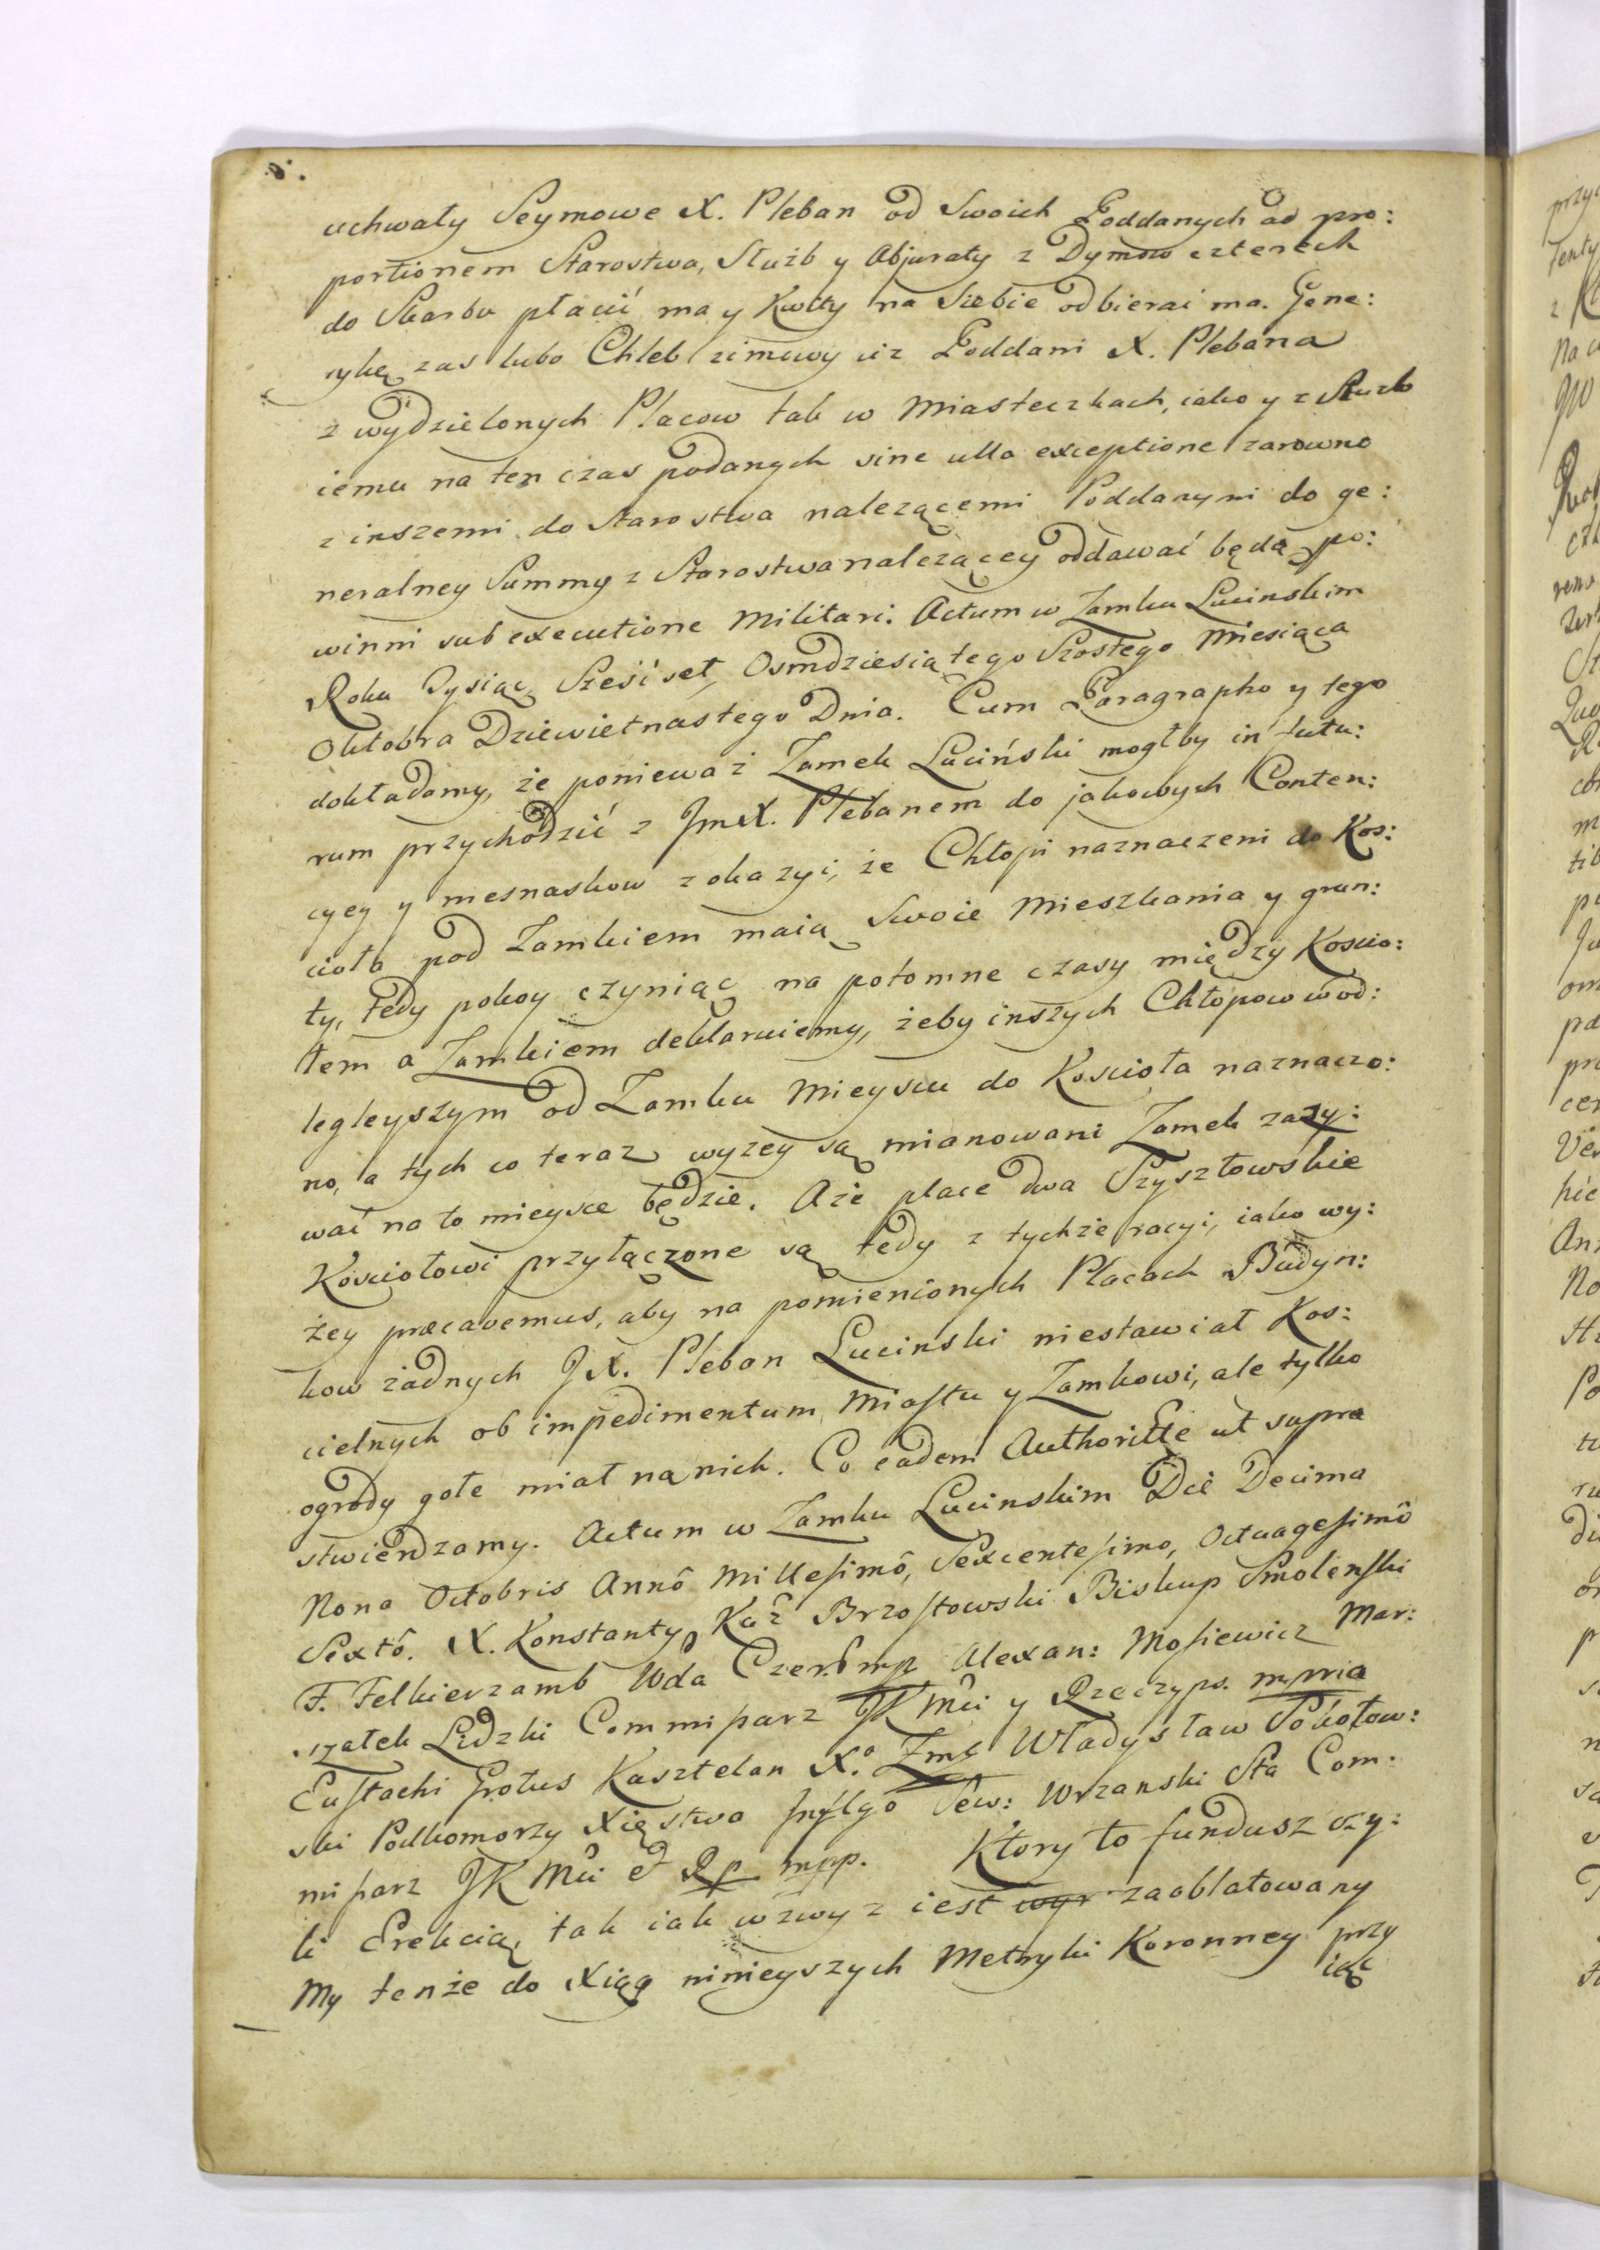 uchwały Seymowe X. Pleban od Swoich Poddanych ad pro:
portionem Starostwa, Służb y Abjuraty z Dymow czterech
do Skarbu płacić ma y Kwity na Siebie odbierać ma. Gene:
rykę zas lubo Chleb zimowy ciz Poddani X. Plebana
z wydzielonych Placow tak w Miasteczkach, iako y z Służb
iemu na ten czas podanych sine ulla exceptione zarowno
z inszemi do Starostwa nalezącemi Poddanymi do ge:
neralney Summy z Starostwa nalezącey oddawać będą po:
winni sub executione Militari. Actum w Zamku Lucinskim
Roku Tysiąc Sześć set, Osmdziesiątego Szostego Miesiąca
Oktobra Dziewietnastego Dnia. Cum Paragrapho y tego
dokładamy, że poniewaź Zamek Luciński mogłby in futu:
rum przychodzić z JmX. Plebanem do jakowych Conten:
cyey y mesnaskow z okazyi, że Chłopi naznaczeni do Kos:
cioła pod Zamkiem maią Swoie Mieszkania y grun:
ty, tedy pokoy czyniąc na potomne czasy między Koscio:
łem a Zamkiem deklaruiemy, żeby inszych Chłopow w od:
legleyszym od Zamku Mieyscu do Kościoła naznaczo:
no, a tych co teraz wyzey są mianowani Zamek zazy:
wał na to mieysce będzie. A że place dwa Szysztowskie
Kościołowi przyłączone są tedy z tychże racyi, iako wy:
żey præcavemus, aby na pomienionych Placach Budyn:
kow żadnych JX. Pleban Lucinski niestawiał Kos:
cielnych ob impedimentum Miastu y Zamkowi, ale tylko
ogrody gołe miał na nich. Co eadem Authoritte ut supra
stwierdzamy. Actum w Zamku Lucinskim Die Decima
Nona Octobris Annô Millesimô, Sexcentesimo, Octuagesimô
Sextô. X. Konstanty Kaz Brzostowski Biskup Smolenski
F. Felkierzamb Wda Czer. mp Alexan: Mosiewicz Mar:
szałek Lidzki Commisarz JK Mci y Rzeczyps. mpria
Eustachi Grotus Kasztelan X. Zmc Władysław Sokołow:
ski Podkomorzy Xięstwa Sew: Wrzanski Sta Com:
misarz JK Mci et Rp mpp. Ktory to fundusz czy:
li Erekcią, tak iak wzwyz iest zaoblatowany
My tenże do Xiąg ninieyszych Metryki Koronney przy
iąć